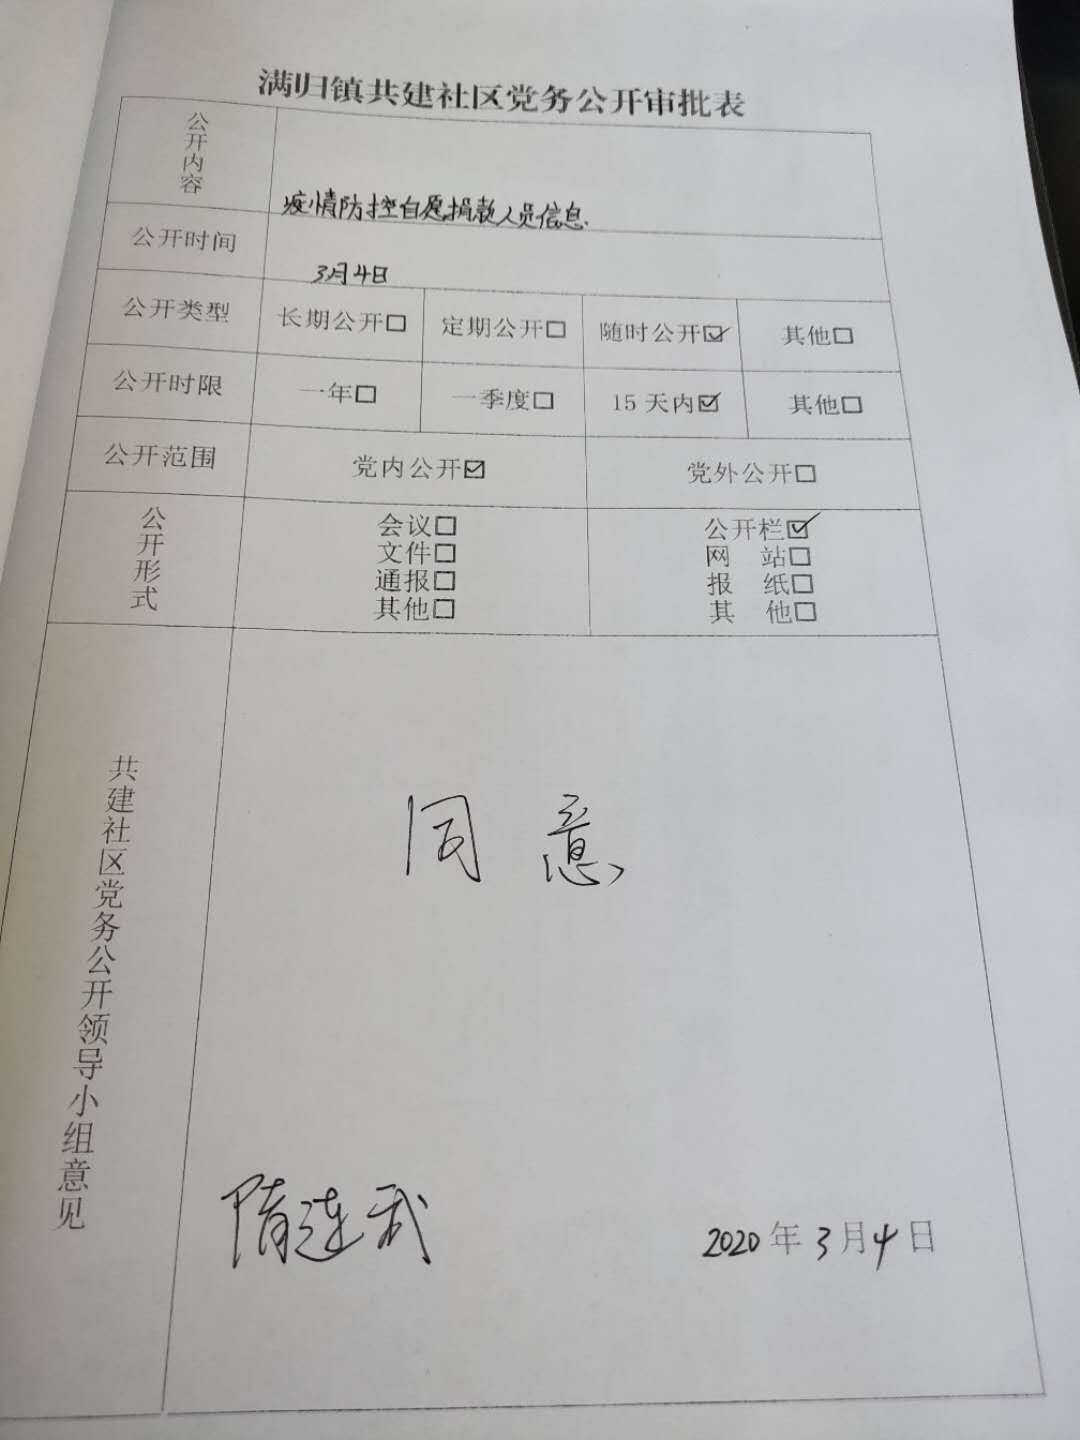 满归镇共建社区党务公开审批表
公开内容
疫情防控自愿捐款人员信息.
公开时间
3月4日
公开类型 长期公开□ 定期公开□ 随时公开☑ 其他□
公开时限 一年□ 一季度□ 15天内☑ 其他□
公开范围 党内公开☑ 党外公开□
公开形式
会议□ 公开栏☑
文件□ 网 站□
通报□ 报 纸□
其他□ 其 他□
共建社区党务公开领导小组意见
同意
隋连武
2020年3月4日